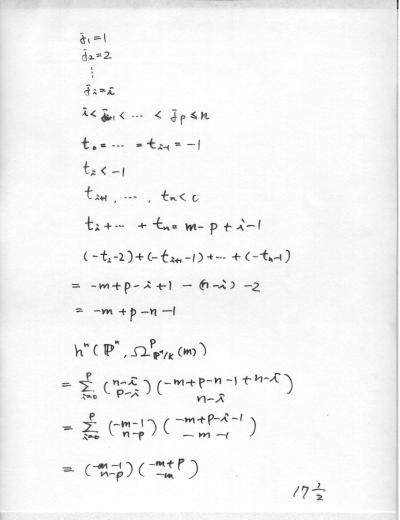 j₁=1
j₂=2
⋮
jᵢ=i
i<jᵢ₊₁< ⋯ < jₚ≤n
t₀=⋯=tᵢ₋₁=-1
tᵢ<-1
tᵢ₊₁, ⋯, tₙ<0
tᵢ+⋯+tₙ=m-p+i-1
(-tᵢ-2)+(-tᵢ₊₁-1)+⋯+(-tₙ-1)
= -m+p-i+1-(n-i)-2
= -m+p-n-1
hⁿ(ℙⁿ, Ωᵖ_{ℙⁿ/k}(m))
= \sum_{i=0}^{p} \binom{n-i}{p-i} \binom{-m+p-n-1+n-i}{n-i}
= \sum_{i=0}^{p} \binom{-m-1}{n-p} \binom{-m+p-i-1}{-m-1}
= \binom{-m-1}{n-p} \binom{-m+p}{-m}
17 1/2